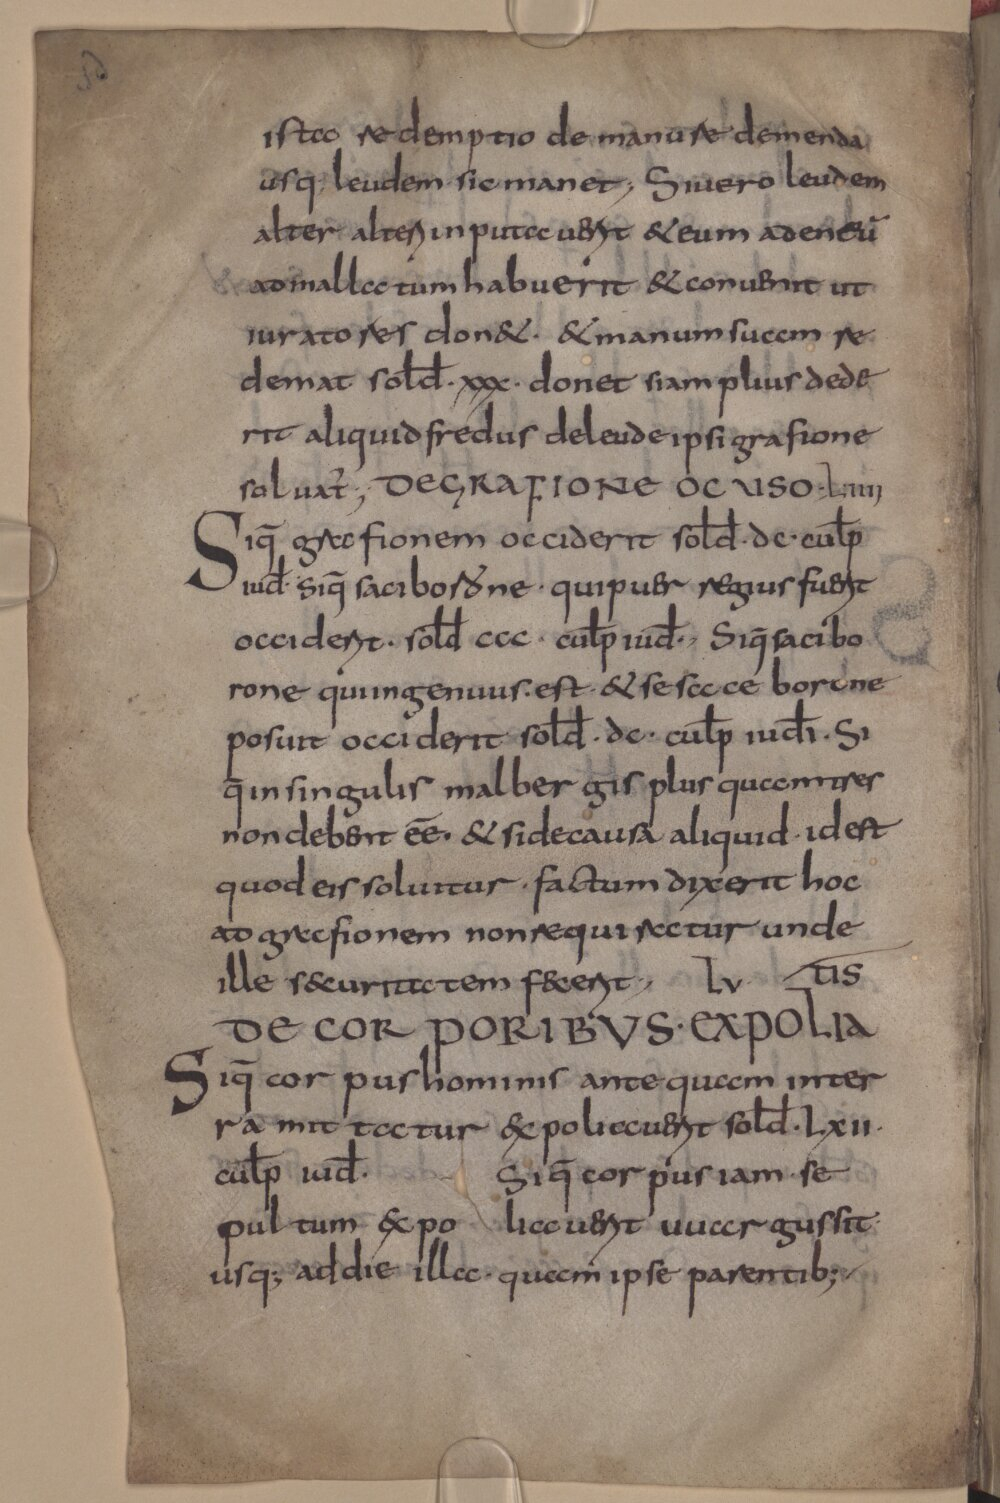 ista redemptio de manu redemenda
usq; leudem sic manet; Siuero leudem
alter alteri inputauerit & eum adeneū
admallatum habuerit & conuenit ut
iuratores don&. & manum suam re
demat sold̄. xxx. donet siam plius dede
rit aliquid fredus deleude ipsi grafione
soluat̄; DEGRAFIONE OCVISO. Liiii
Siq̄ grafionem occiderit sold̄. dc. culp̄
iud̄. siq̄ saciborone. qui puer regius fuerit
occiderit. sold̄ ccc. culp̄ iud̄.; Siq̄ sacibo
rone qui ingenuus. est. & se saceborone
posuit occiderit sold̄. dc. culp̄ iud̄i. Si
q̄ in singulis malbergis plus quam tres
non debent ēē. & si de causa aliquid. id est
quod eis soluitur. factum dixerit hoc
ad grafionem non requiratur unde
ille s&curitatem f&erit; Lv tis
DE CORPORIBVS. EXPOLIA
Siq̄ corpus hominis antequam inter
ra mittatur &poliauerit sold̄. Lxii.
culp̄ iud̄. Siq̄ corpus iam. se
pultum &po liauerit uuargus sit
usq; ad die illa. quam ipse parentib;